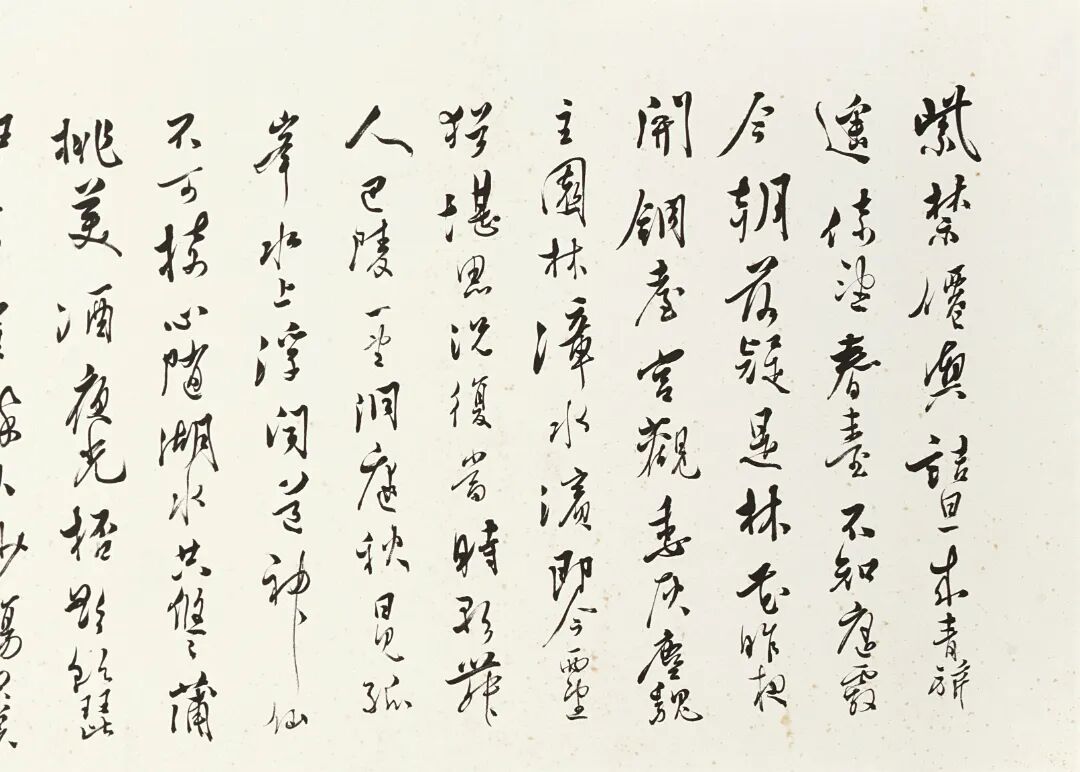 紫禁僊輿詰旦來青旂
遙倚望春臺不知庭霰
今朝落疑是林花昨夜
開銅臺宮觀委灰塵魏
主園林漳水濱即今西望
猶堪思況復當時歌舞
人巴陵一望洞庭秋日見孤
峯水上浮聞道神仙
不可接心隨湖水共悠〻蒲
桃美酒夜光桮欲飲琵